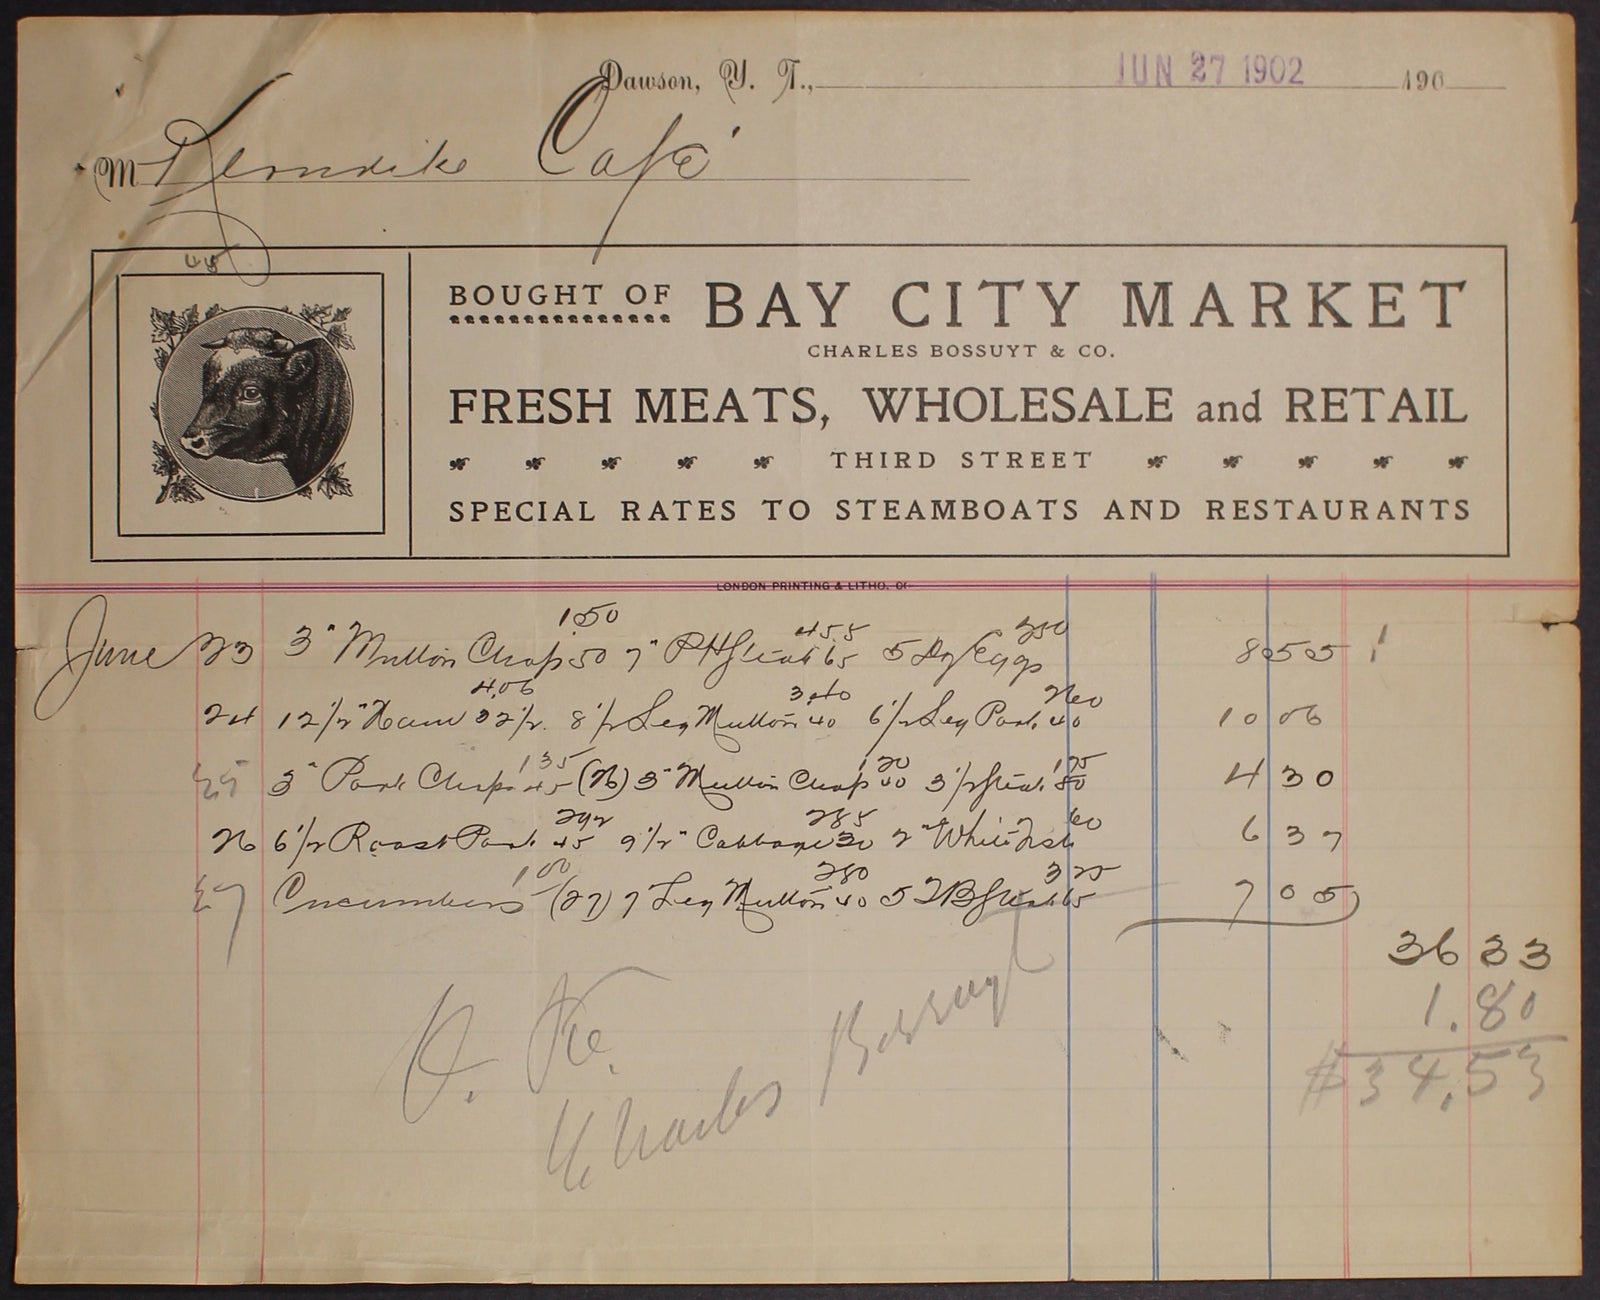 Dawson, Y. T., JUN 27 1902 190
M Klondike Café
45
BOUGHT OF BAY CITY MARKET
CHARLES BOSSUYT & CO.
FRESH MEATS, WHOLESALE and RETAIL
THIRD STREET
SPECIAL RATES TO STEAMBOATS AND RESTAURANTS
LONDON PRINTING & LITHO. Co
1.50 4.55 2.50
June 23 3" Mutton Chops 50 7" PHSteak 65 5 Dz Eggs 8 55
4.06 3.40 2.60
24 12 1/2" Ham 32 1/2 8 1/2 Leg Mutton 40 6 1/2 Leg Pork 40 10 06
1 35 1 20 1 75
25 3" Pork Chops 45 (26) 3" Mutton Chop 40 3 1/2 Steak 50 4 30
2 92 2 85 60
26 6 1/2 Roast Pork 45 9 1/2" Cabbage 30 2" White Fish 6 37
1 00 2 80 3 25
27 Cucumbers (27) 7 Leg Mutton 40 5 TBSteak 65 7 05
36 33
1.80
$34.53
O. Ke.
Charles Bossuyt